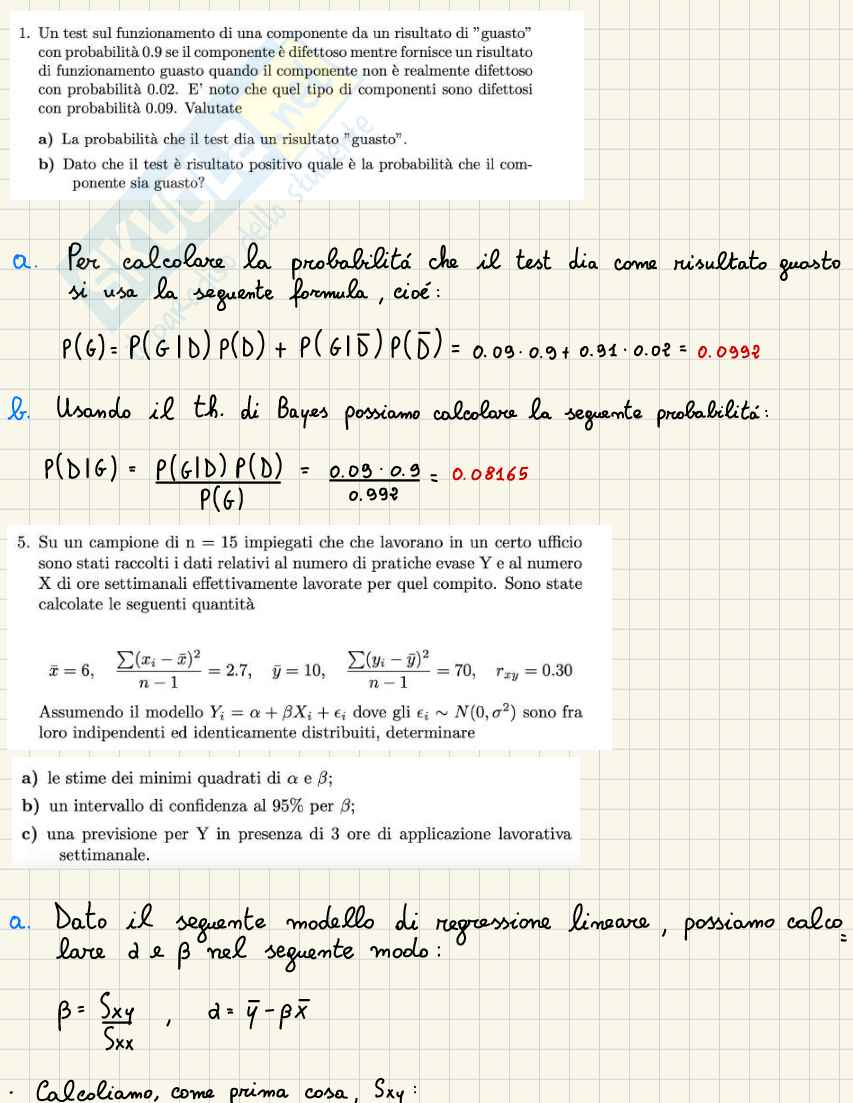 1. Un test sul funzionamento di una componente da un risultato di "guasto"
con probabilità 0.9 se il componente è difettoso mentre fornisce un risultato
di funzionamento guasto quando il componente non è realmente difettoso
con probabilità 0.02. E' noto che quel tipo di componenti sono difettosi
con probabilità 0.09. Valutate
a) La probabilità che il test dia un risultato "guasto".
b) Dato che il test è risultato positivo quale è la probabilità che il com-
ponente sia guasto?
a. Per calcolare la probabilitá che il test dia come risultato guasto
si usa la seguente formula, cioé:
P(G) = P(G|D) P(D) + P(G|D̅) P(D̅) = 0.09 · 0.9 + 0.91 · 0.02 = 0.0992
b. Usando il th. di Bayes possiamo calcolare la seguente probabilitá:
P(D|G) = P(G|D) P(D) / P(G) = 0.09 · 0.9 / 0.992 = 0.08165
5. Su un campione di n = 15 impiegati che che lavorano in un certo ufficio
sono stati raccolti i dati relativi al numero di pratiche evase Y e al numero
X di ore settimanali effettivamente lavorate per quel compito. Sono state
calcolate le seguenti quantità
x̄ = 6, ∑(xᵢ − x̄)² / n − 1 = 2.7, ȳ = 10, ∑(yᵢ − ȳ)² / n − 1 = 70, rₓᵧ = 0.30
Assumendo il modello Yᵢ = α + βXᵢ + ϵᵢ dove gli ϵᵢ ∼ N(0, σ²) sono fra
loro indipendenti ed identicamente distribuiti, determinare
a) le stime dei minimi quadrati di α e β;
b) un intervallo di confidenza al 95% per β;
c) una previsione per Y in presenza di 3 ore di applicazione lavorativa
settimanale.
a. Dato il seguente modello di regressione lineare, possiamo calco=
lare α e β nel seguente modo:
β = Sxy / Sxx , α = ȳ - βx̄
· Calcoliamo, come prima cosa, Sxy: